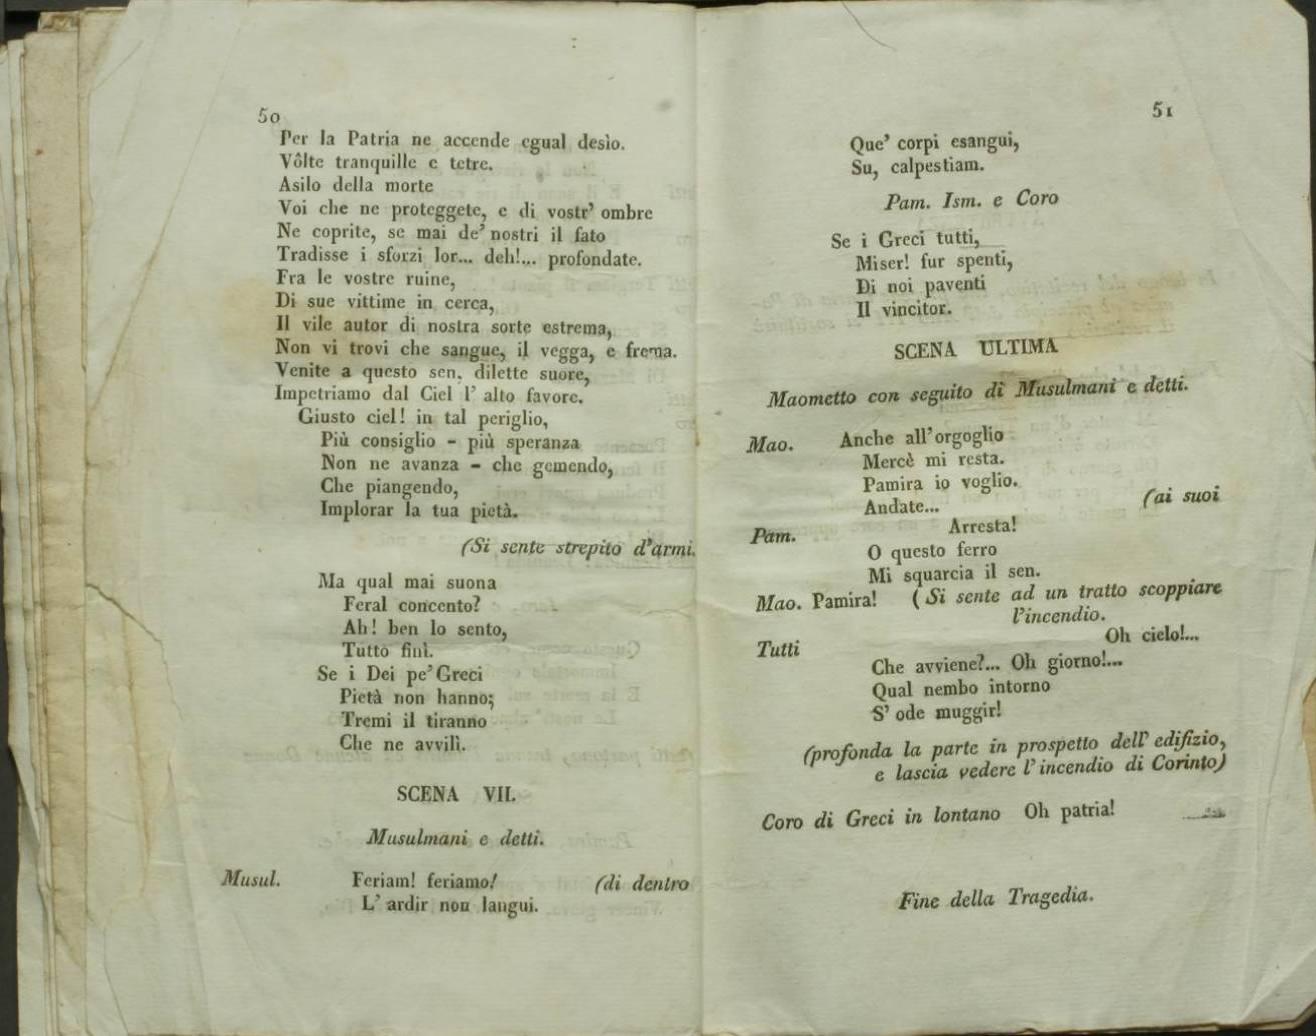 50
Per la Patria ne accende egual desìo.
Vôlte tranquille e tetre.
Asilo della morte
Voi che ne proteggete, e di vostr' ombre
Ne coprite, se mai de' nostri il fato
Tradisse i sforzi lor... deh!... profondate.
Fra le vostre ruine,
Di sue vittime in cerca,
Il vile autor di nostra sorte estrema,
Non vi trovi che sangue, il vegga, e frema.
Venite a questo sen, dilette suore,
Impetriamo dal Ciel l' alto favore.
Giusto ciel! in tal periglio,
Più consiglio - più speranza
Non ne avanza - che gemendo,
Che piangendo,
Implorar la tua pietà.
(Si sente strepito d'armi.
Ma qual mai suona
Feral concento?
Ah! ben lo sento,
Tutto finì.
Se i Dei pe' Greci
Pietà non hanno;
Tremi il tiranno
Che ne avvilì.
SCENA VII.
Musulmani e detti.
Musul. Feriam! feriamo! (di dentro
L' ardir non languì.
51
Que' corpi esangui,
Su, calpestiam.
Pam. Ism. e Coro
Se i Greci tutti,
Miser! fur spenti,
Di noi paventi
Il vincitor.
SCENA ULTIMA
Maometto con seguito di Musulmani e detti.
Mao. Anche all'orgoglio
Mercè mi resta.
Pamira io voglio.
Andate... (ai suoi
Pam. Arresta!
O questo ferro
Mi squarcia il sen.
Mao. Pamira! (Si sente ad un tratto scoppiare
l'incendio.
Oh cielo!...
Tutti
Che avviene?... Oh giorno!...
Qual nembo intorno
S' ode muggir!
(profonda la parte in prospetto dell' edifizio,
e lascia vedere l'incendio di Corinto)
Coro di Greci in lontano Oh patria!
Fine della Tragedia.